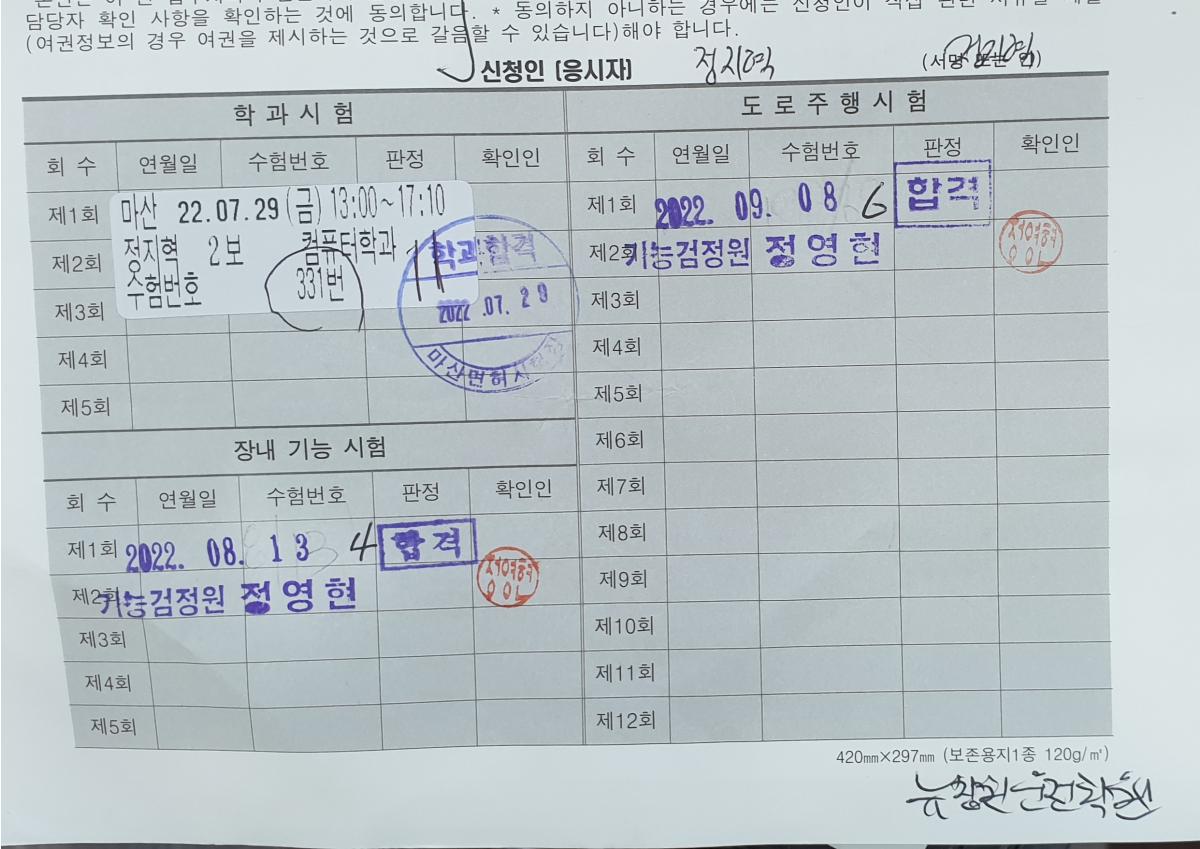 담당자 확인 사항을 확인하는 것에 동의합니다. * 동의하지 아니하는 경우에는 신청인이 직접 관련
(여권정보의 경우 여권을 제시하는 것으로 갈음할 수 있습니다)해야 합니다.
신청인 (응시자) 정지혁 (서명 또는 인)
학 과 시 험
회 수 연월일 수험번호 판정 확인인
제1회 마산 22.07.29(금) 13:00~17:10
제2회 정지혁 2보 컴퓨터학과 학과합격
수험번호 331번
제3회 2022 .07. 29
제4회 마산면허시험장
제5회
장내 기능 시험
회 수 연월일 수험번호 판정 확인인
제1회 2022. 08. 13 4 합격
제2회 기능검정원 정영현
제3회
제4회
제5회
도 로 주 행 시 험
회 수 연월일 수험번호 판정 확인인
제1회 2022. 09. 08 6 합격
제2회 기능검정원 정영현
제3회
제4회
제5회
제6회
제7회
제8회
제9회
제10회
제11회
제12회
420㎜×297㎜ (보존용지1종 120g/㎡)
뉴창원운전학원